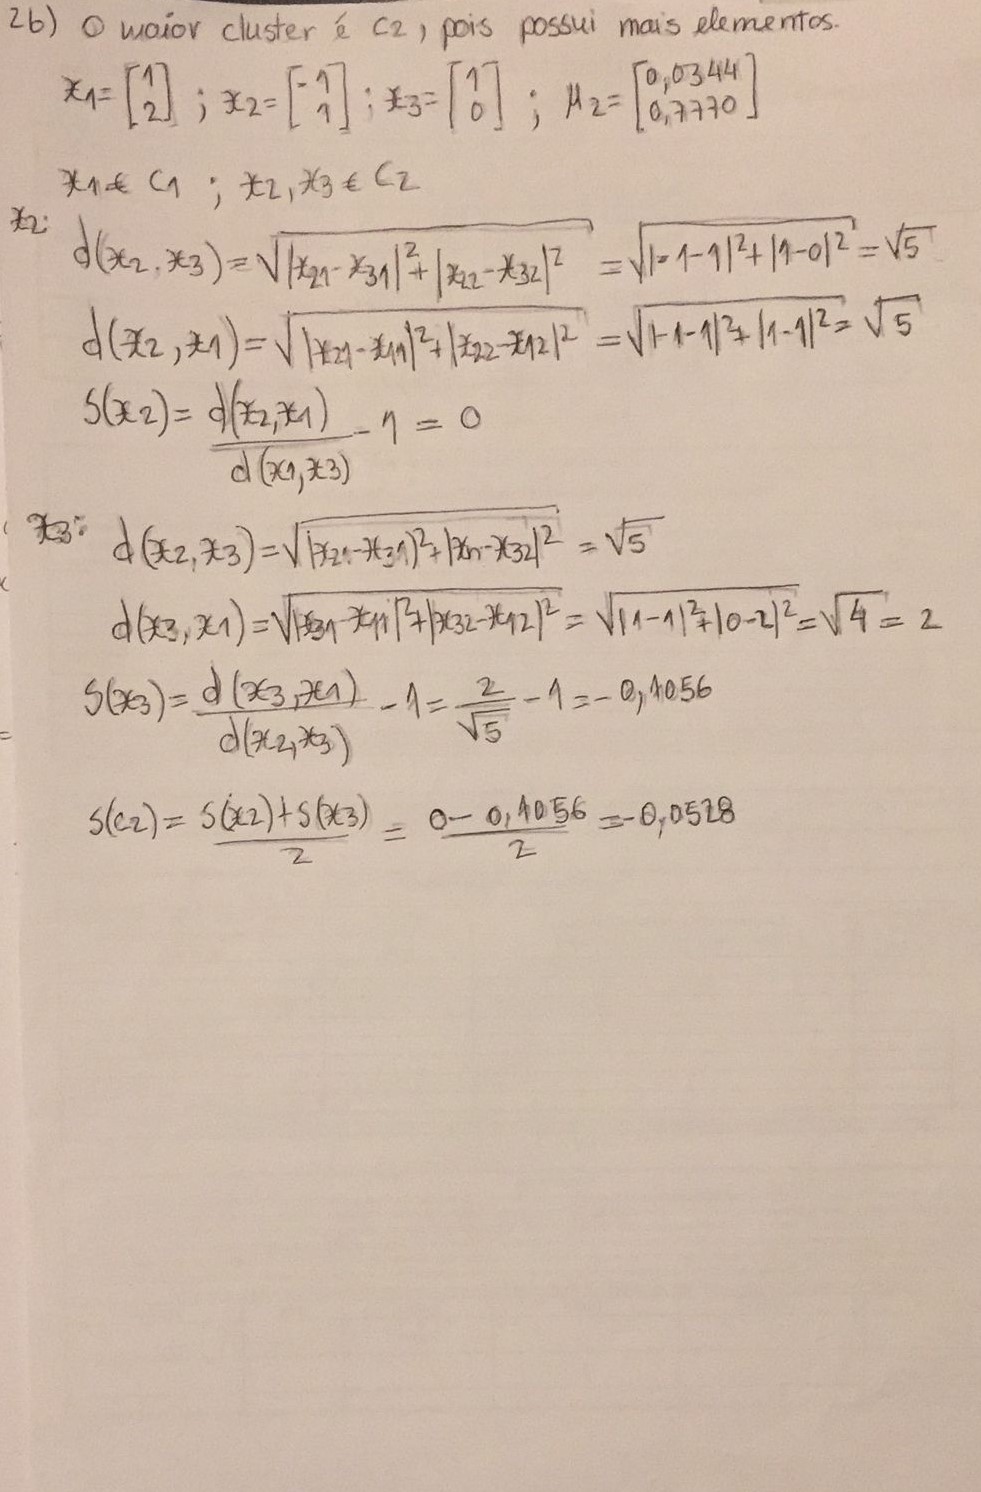 2b) O maior cluster é C2, pois possui mais elementos.
x1=[1 2] ; x2=[-1 1] ; x3=[1 0] ; μ2=[0,0344 0,7770]
x1 € C1 ; x2, x3 € C2
x2:
d(x2,x3)=√|x21-x31|²+|x22-x32|² = √|-1-1|²+|1-0|² = √5
d(x2,x1)=√|x21-x11|²+|x22-x12|² = √|-1-1|²+|1-1|² = √5
S(x2)= d(x2,x1)/d(x1,x3) - 1 = 0
x3:
d(x2,x3)=√|x21-x31)²+|xn-x32|² = √5
d(x3,x1)=√|x31-x11|²+|x32-x12|² = √|1-1|²+|0-2|² = √4 = 2
S(x3)= d(x3,x1)/d(x2,x3) - 1 = 2/√5 - 1 = -0,1056
S(c2)= S(x2)+S(x3)/2 = 0-0,1056/2 = -0,0528